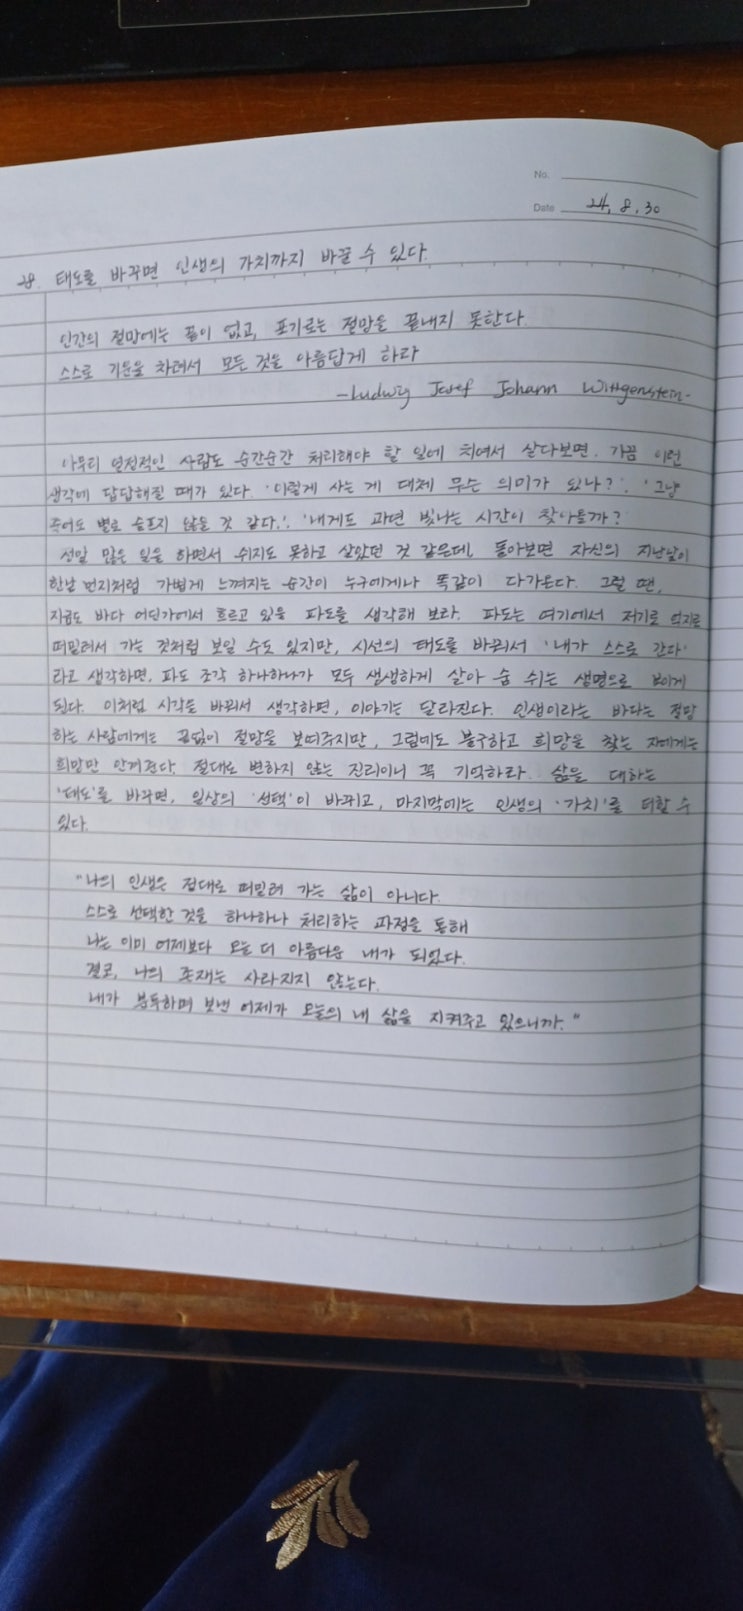 No.
Date 24, 8, 30
28. 태도를 바꾸면 인생의 가치까지 바꿀 수 있다.
인간의 절망에는 끝이 없고, 포기로는 절망을 끝내지 못한다.
스스로 기운을 차려서 모든 것을 아름답게 하라
-Ludwig Josef Johann Wittgenstein-
아무리 열정적인 사람도 순간순간 처리해야 할 일에 치여서 살다보면, 가끔 이런
생각에 답답해질 때가 있다. '이렇게 사는 게 대체 무슨 의미가 있나?', '그냥
죽어도 별로 슬프지 않을 것 같다.', '내게도 과연 빛나는 시간이 찾아올까?'
정말 많은 일을 하면서 쉬지도 못하고 살았던 것 같은데, 돌아보면 자신의 지난날이
한낱 먼지처럼 가볍게 느껴지는 순간이 누구에게나 똑같이 다가온다. 그럴 땐,
지금도 바다 어딘가에서 흐르고 있을 파도를 생각해 보라. 파도는 여기에서 저기로 억지로
떠밀려서 가는 것처럼 보일 수도 있지만, 시선의 태도를 바꿔서 '내가 스스로 간다'
라고 생각하면, 파도 조각 하나하나가 모두 생생하게 살아 숨 쉬는 생명으로 보이게
된다. 이처럼 시각을 바꿔서 생각하면, 이야기는 달라진다. 인생이라는 바다는 절망
하는 사람에게는 끝없이 절망을 보여주지만, 그럼에도 불구하고 희망을 찾는 자에게는
희망만 안겨준다. 절대로 변하지 않는 진리이니 꼭 기억하라. 삶을 대하는
'태도'를 바꾸면, 일상의 '선택'이 바뀌고, 마지막에는 인생의 '가치'를 더할 수
있다.
"나의 인생은 절대로 떠밀려 가는 삶이 아니다.
스스로 선택한 것을 하나하나 처리하는 과정을 통해
나는 이미 어제보다 오늘 더 아름다운 내가 되었다.
결코, 나의 존재는 사라지지 않는다.
내가 분투하며 보낸 어제가 오늘의 내 삶을 지켜주고 있으니까."